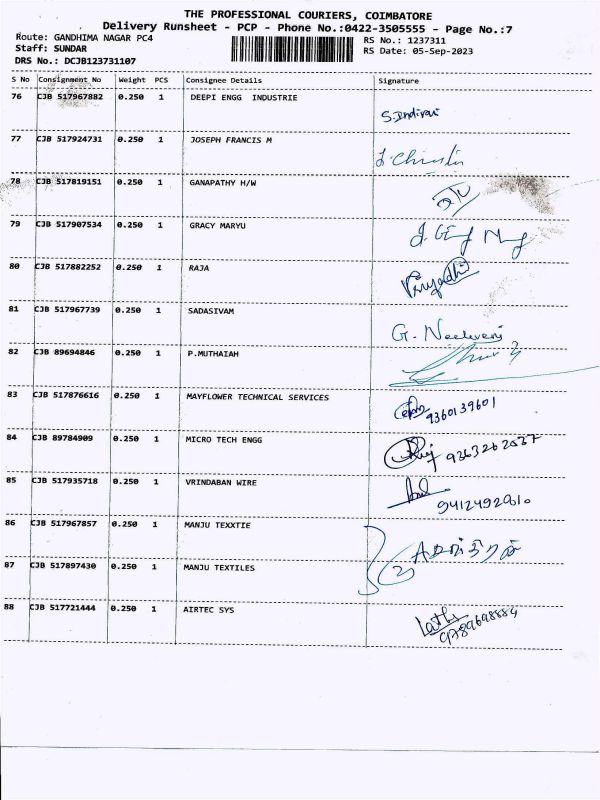 THE PROFESSIONAL COURIERS, COIMBATORE
Delivery Runsheet - PCP - Phone No.:0422-3505555 - Page No.:7
Route: GANDHIMA NAGAR PC4 RS No.: 1237311
Staff: SUNDAR RS Date: 05-Sep-2023
DRS No.: DCJB123731107
S No Consignment No Weight PCS Consignee Details Signature
76 CJB 517967882 0.250 1 DEEPI ENGG INDUSTRIE
77 CJB 517924731 0.250 1 JOSEPH FRANCIS M
78 CJB 517819151 0.250 1 GANAPATHY H/W
79 CJB 517907534 0.250 1 GRACY MARYU
80 CJB 517882252 0.250 1 RAJA
81 CJB 517967739 0.250 1 SADASIVAM
82 CJB 89694846 0.250 1 P.MUTHAIAH
83 CJB 517876616 0.250 1 MAYFLOWER TECHNICAL SERVICES 9360139601
84 CJB 89784909 0.250 1 MICRO TECH ENGG
85 CJB 517935718 0.250 1 VRINDABAN WIRE
86 CJB 517967857 0.250 1 MANJU TEXXTIE
87 CJB 517897430 0.250 1 MANJU TEXTILES
88 CJB 517721444 0.250 1 AIRTEC SYS